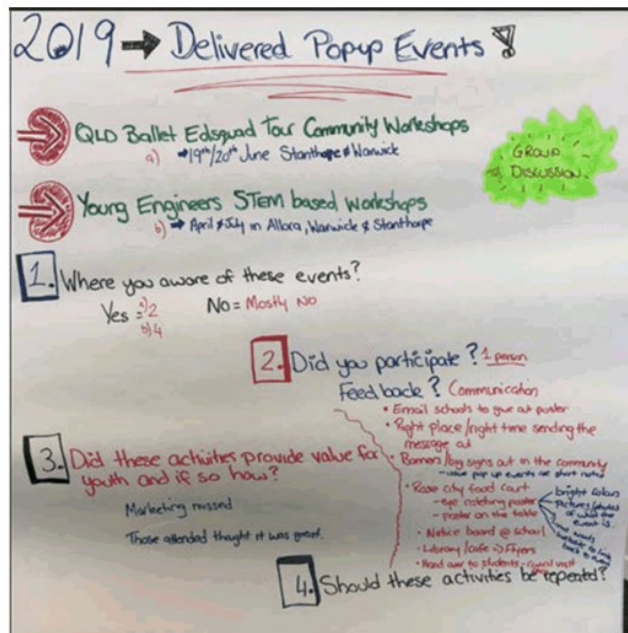 2019 → Delivered Popup Events!
QLD Ballet Edsquad Tour Community Workshops
a) → 19th/20th June Stanthorpe & Warwick
GROUP
DISCUSSION
Young Engineers STEM based workshops
b) → April & July in Allora, Warwick & Stanthorpe
1. Where you aware of these events?
Yes = a) 2
b) 4
No = Mostly No
2. Did you participate? 1 person
Feedback? Communication
• Email schools to give out poster
• Right place/right time sending the
message out
• Banners/big signs out in the community
pop up events short
• Rose city food court
- eye catching poster
- poster on the table
bright colours
pictures/photos
of what the
event is.
website to link
back to
• Notice board @ school
• Library/cafe => Flyers
• Hand over to students - council visit
3. Did these activities provide value for
youth and if so how?
Marketing missed
Those attended thought it was great.
4. Should these activities be repeated?